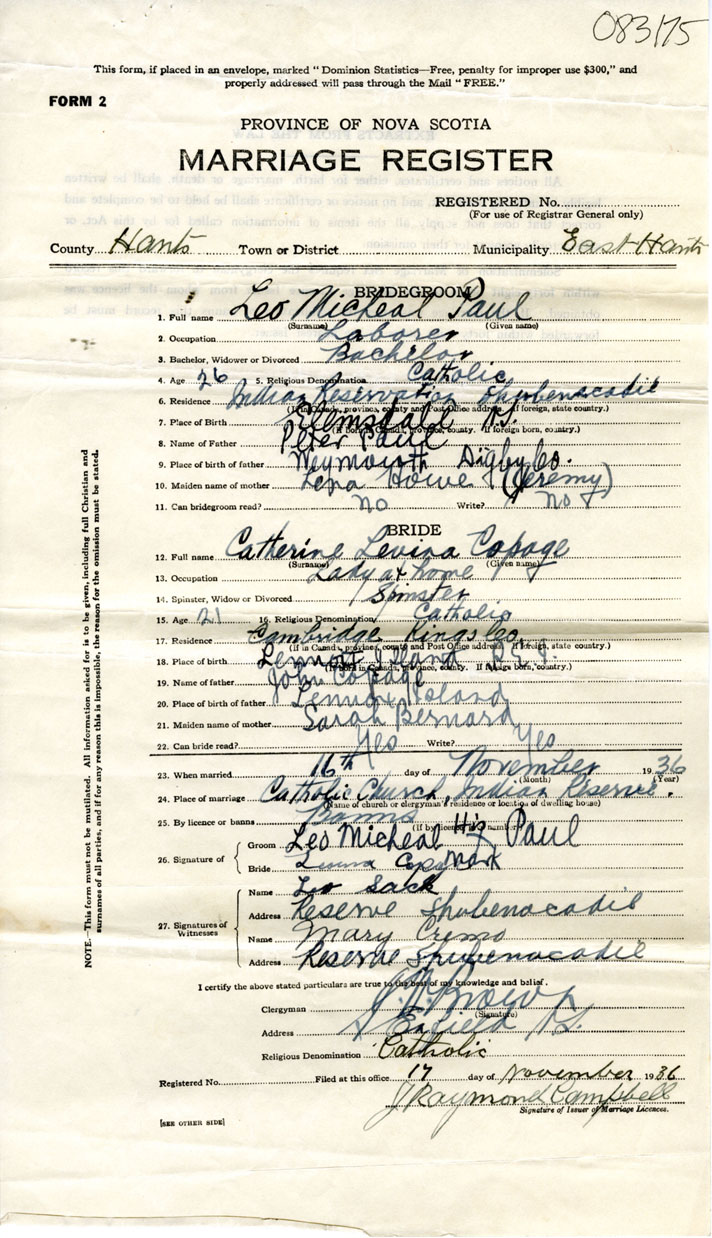 083175
This form, if placed in an envelope, marked "Dominion Statistics—Free, penalty for improper use $300," and
properly addressed will pass through the Mail "FREE."
FORM 2
PROVINCE OF NOVA SCOTIA
MARRIAGE REGISTER
REGISTERED No.
(For use of Registrar General only)
County Hants Town or District Municipality East Hants
BRIDEGROOM
1. Full name Leo Micheal Paul
(Surname) (Given name)
2. Occupation Laborer
3. Bachelor, Widower or Divorced Bachelor
4. Age 26 5. Religious Denomination Catholic
6. Residence Indian Reservation Shubenacadie
(If in Canada, province, county and Post Office address. If foreign, state country.)
7. Place of Birth Elmsdale N.S.
(If born in Canada, province, county. If foreign born, country.)
8. Name of Father Peter Paul
9. Place of birth of father Weymouth Digby Co.
10. Maiden name of mother Lena Howe (Jeremy)
11. Can bridegroom read? no Write? no
BRIDE
12. Full name Catherine Levina Copage
(Surname) (Given name)
13. Occupation Lady at home
14. Spinster, Widow or Divorced Spinster
15. Age 21 16. Religious Denomination Catholic
17. Residence Cambridge Kings Co.
(If in Canada, province, county and Post Office address. If foreign, state country.)
18. Place of birth Lennox Island P.E.I.
(If born in Canada, province, county. If foreign born, country.)
19. Name of father John Copage
20. Place of birth of father Lennox Island
21. Maiden name of mother Sarah Bernard
22. Can bride read? Yes Write? Yes
23. When married 16th day of November 1936
(Month) (Year)
24. Place of marriage Catholic Church, Indian Reserve.
(Name of church or clergyman's residence or location of dwelling house)
25. By licence or banns Banns
(If by licence, number)
26. Signature of
Groom Leo Micheal His X Paul
Bride Levina Copage Mark
27. Signatures of Witnesses
Name Leo Sack
Address Reserve Shubenacadie
Name Mary Cremo
Address Reserve Shubenacadie
I certify the above stated particulars are true to the best of my knowledge and belief.
Clergyman Brown
(Signature)
Address Enfield N.S.
Religious Denomination Catholic
Registered No. Filed at this office 17 day of November 1936
J Raymond Campbell
Signature of Issuer of Marriage Licences.
[SEE OTHER SIDE]
NOTE.—This form must not be mutilated. All information asked for is to be given, including full Christian and
surnames of all parties, and if for any reason this is impossible, the reason for the omission must be stated.